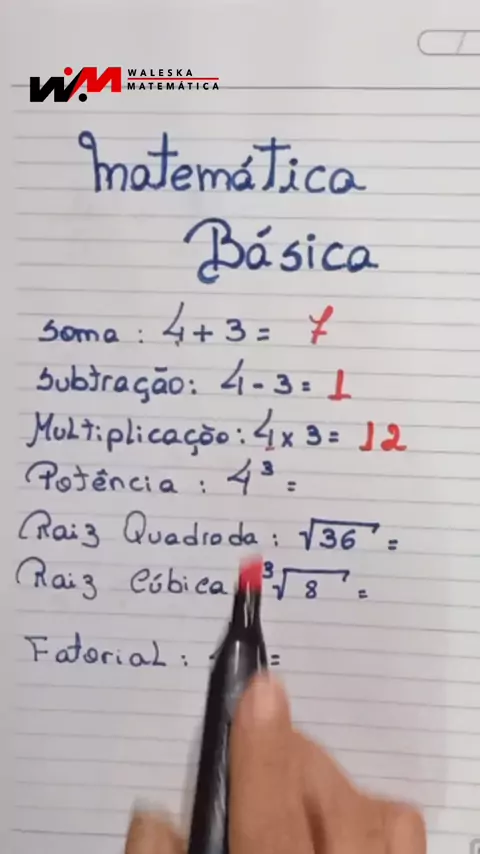 WM WALESKA
MATEMÁTICA
Matemática
Básica
Soma : 4 + 3 = 7
Subtração: 4 - 3 = 1
Multiplicação: 4 x 3 = 12
Potência : 4³ =
Raiz Quadrada : √36 =
Raiz Cúbica ³√8 =
Fatorial : =